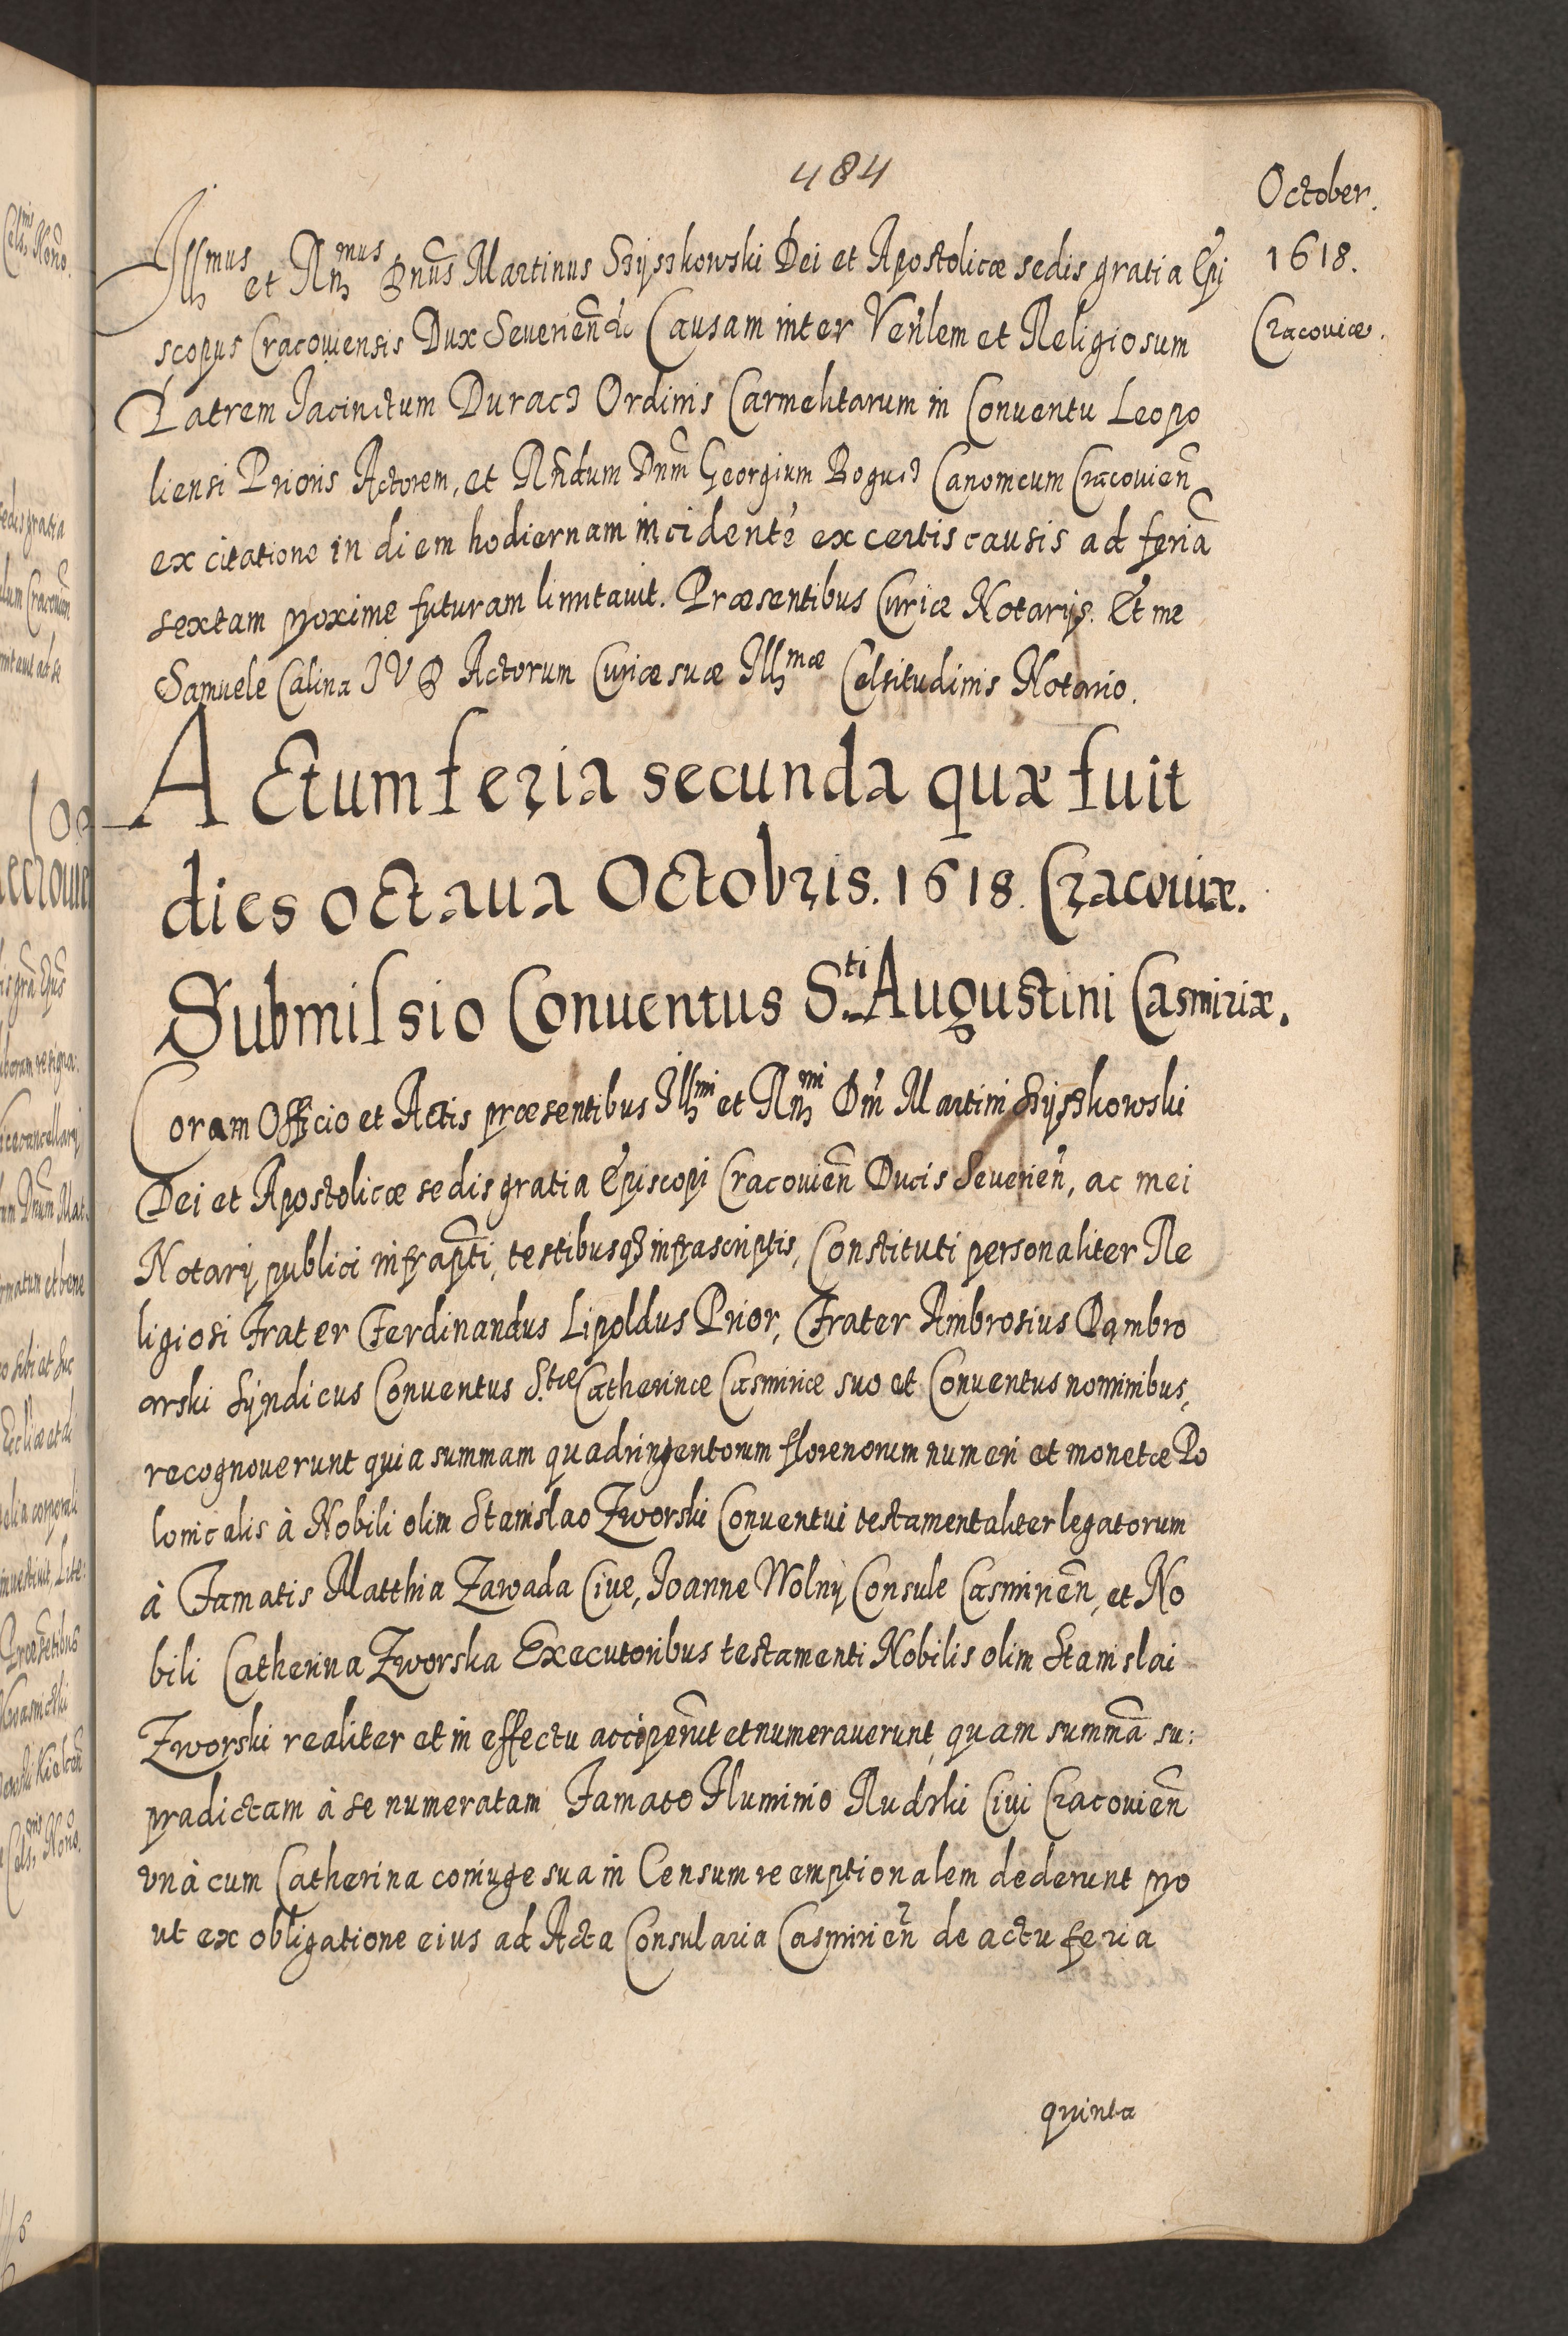 484
October.
1618.
Cracoviæ.
Illmus et Rnmus Dnus Martinus Szyszkowski Dei et Apostolicæ sedis gratia Epi
scopus Cracouiensis Dux Severien̄ &c Causam inter Ven̄lem et Religiosum
Patrem Jacinctum Duracz Ordinis Carmelitarum in Conventu Leopo
liensi Prioris Actorem, et Rn̄dum Dnm̄ Georgium Bogucz Canonicum Cracovien̄
ex citatione in diem hodiernam incidente ex certis causis ad feriā
sextam proxime futuram limitauit. Præsentibus Curiæ Notarijs. Et me
Samuele Calina I V D Actorum Curiæ suæ Illmæ Celsitudinis Notario.
Actum feria secunda quæ fuit
dies octaua Octobris. 1618. Cracouiæ.
Submissio Conuentus S.ti Augustini Casmiriæ.
Coram Officio et Actis præsentibus Illmi et Rnmi Dn̄i Martini Szyszkowski
Dei et Apostolicæ sedis gratia Episcopi Cracouien̄ Ducis Seuerien̄, ac mei
Notarij publici infrap̄ti, testibusq3 infrascriptis, Constituti personaliter Re
ligiosi Frater Ferdinandus Lipoldus Prior, Frater Ambrosius Dąmbro
orski Syndicus Conuentus S.tæ Catherinæ Casmiriæ suo et Conuentus nominibus,
recognouerunt quia summam quadringentorum florenorum numeri et monetæ Po
lonicalis à Nobili olim Stanislao Zworski Conuentui testamentaliter legatorum
à Famatis Matthia Zawada Ciue, Joanne Wolny Consule Casmirien̄, et No
bili Catherina Zworska Executoribus testamenti Nobilis olim Stanislai
Zworski realiter et in effectu acciperūt et numerauerunt, quam summā su:
pradictam à se numeratam Famato Fluminio Rudzki Ciui Cracouien̄
vnà cum Catherina coniuge sua in Censum reemptionalem dederunt pro
ut ex obligatione eius ad Acta Consularia Casmirien̄ de actu feria
quinta